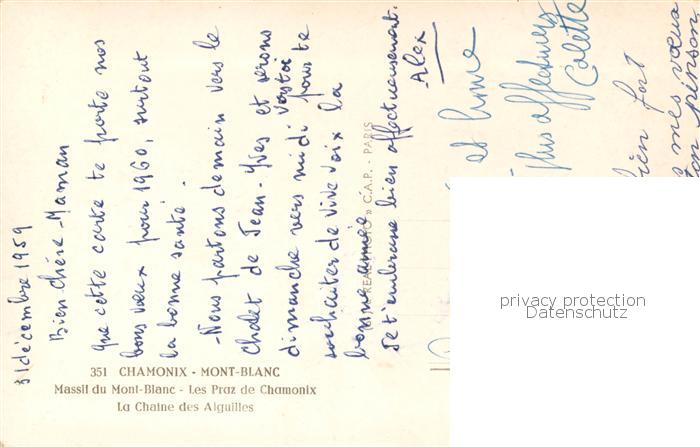 31 décembre 1959
Bien chère Maman
que cette carte te porte nos
bons vœux pour 1960, surtout
la bonne santé.
-Nous partons demain vers le
chalet de Jean-Yves et serons
dimanche vers midi vers toi pour te
souhaiter de vive voix la
bonne année
Je t'embrasse bien affectueusement.
Alex
et
plus affectueux
Colette
bien fort
mes vœux
ton pinson
351 CHAMONIX - MONT-BLANC
Massif du Mont-Blanc - Les Praz de Chamonix
La Chaine des Aiguilles
REAL-PHOTO » C.A.P. - PARIS
privacy protection
Datenschutz